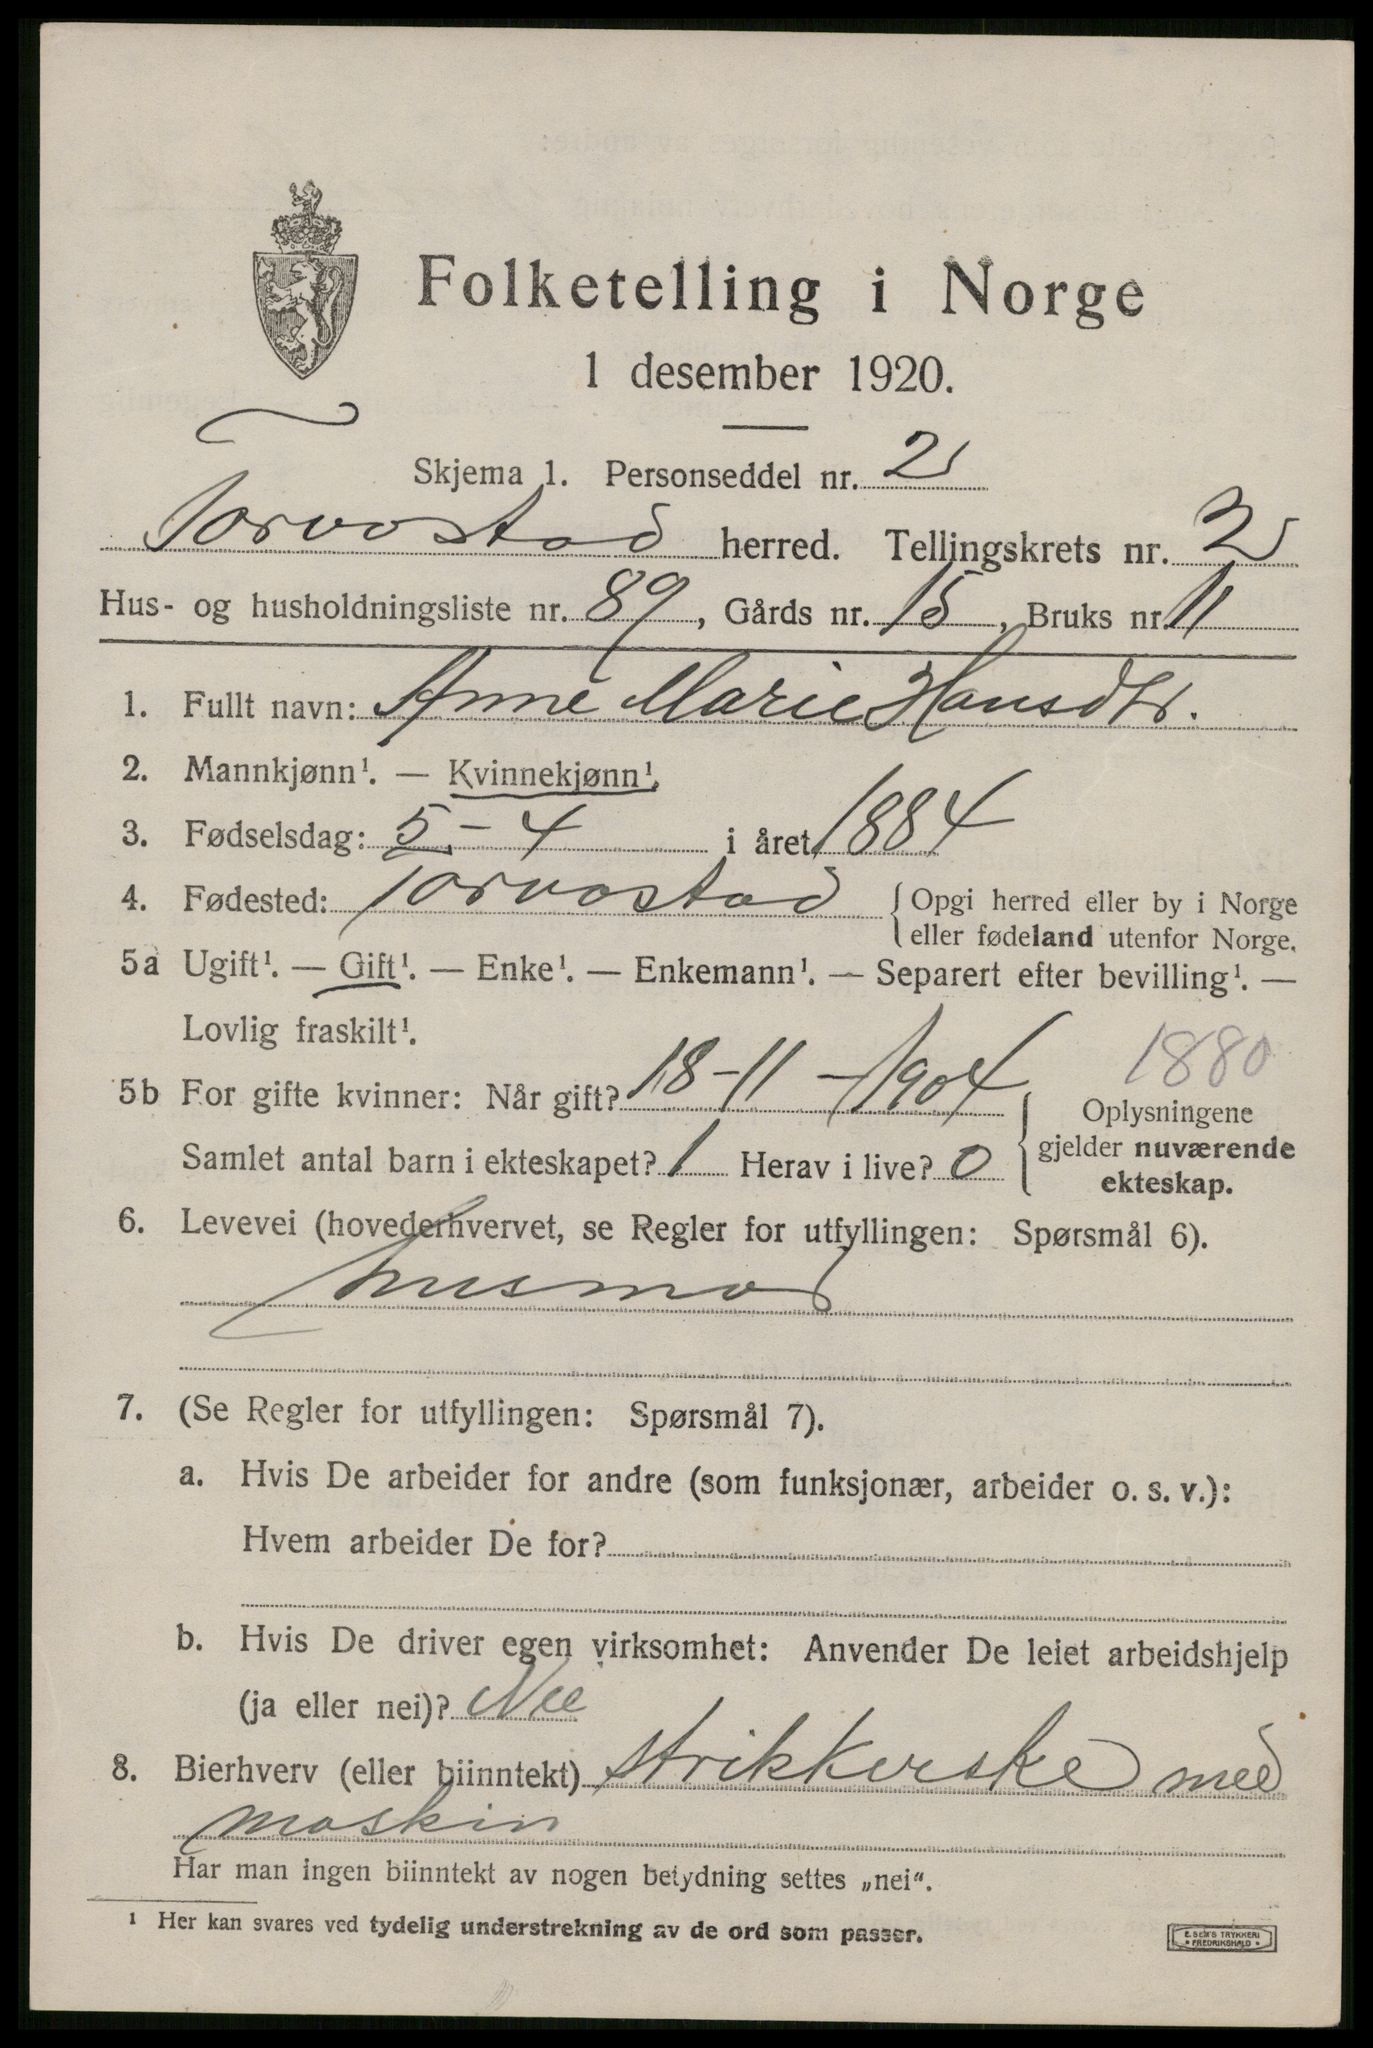 Folketelling i Norge
1 desember 1920.
Skjema 1. Personseddel nr. 2
Torvastad herred. Tellingskrets nr. 2
Hus- og husholdningsliste nr. 89, Gårds nr. 15, Bruks nr. 11
1. Fullt navn: Anne Marie Hansdtr.
2. Mannkjønn¹. — Kvinnekjønn¹.
3. Fødselsdag: 5 - 4 i året 1884
4. Fødested: Torvastad { Opgi herred eller by i Norge
eller fødeland utenfor Norge.
5a Ugift¹. — Gift¹. — Enke¹. — Enkemann¹. — Separert efter bevilling¹. —
Lovlig fraskilt¹.
1880
5b For gifte kvinner: Når gift? 18-11-1904
Samlet antal barn i ekteskapet? 1 Herav i live? 0
} Oplysningene
gjelder nuværende
ekteskap.
6. Levevei (hovederhvervet, se Regler for utfyllingen: Spørsmål 6).
husmor
7. (Se Regler for utfyllingen: Spørsmål 7).
a. Hvis De arbeider for andre (som funksjonær, arbeider o. s. v.):
Hvem arbeider De for?
b. Hvis De driver egen virksomhet: Anvender De leiet arbeidshjelp
(ja eller nei)? Nei
8. Bierhverv (eller biinntekt) strikkerske med
maskin
Har man ingen biinntekt av nogen betydning settes „nei“.
¹ Her kan svares ved tydelig understrekning av de ord som passer.
E. SEM'S TRYKKERI
• FREDRIKSHALD •